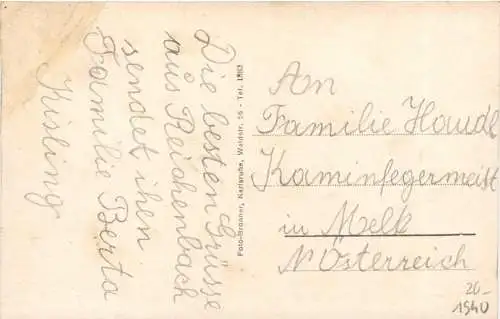 Die besten Grüsse
aus Reichenbach
sendet ihen
Familie Berta
Kisling
Foto-Brunner, Karlsruhe, Waldstr. 56 - Tel.
Am
Familie Haudl
Kaminfegermeist
in Melk
N Österreich
20-
1940